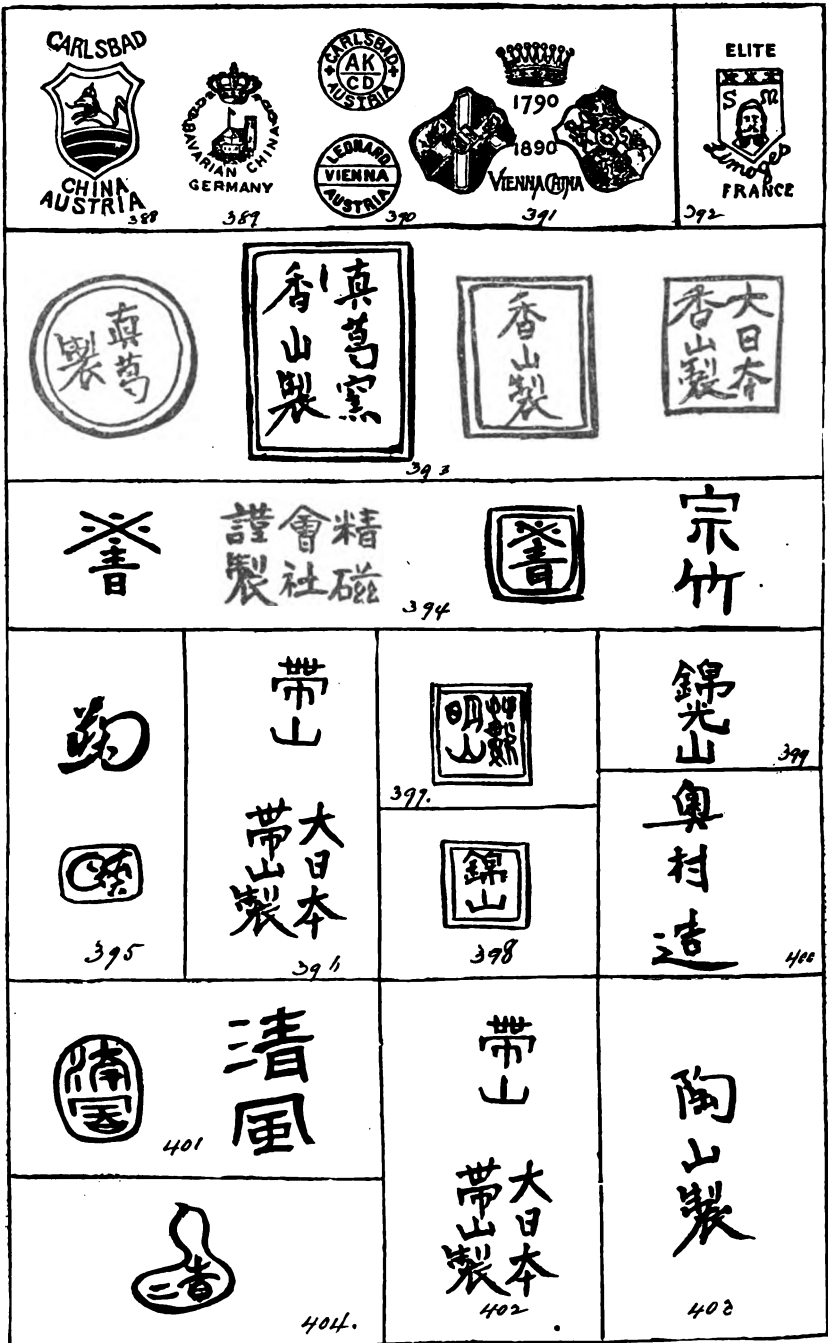 CARLSBAD
CHINA
AUSTRIA
388
BAVARIAN CHINA
GERMANY
389
CARLSBAD
AK
CD
AUSTRIA
LEONARD
VIENNA
AUSTRIA
390
1790
1890
VIENNA CHINA
391
ELITE
S M
Limoges
FRANCE
392
真葛
製
真葛窯
香山製
香山製
大日本
香山製
393
精磁
會社
謹製
394
宗竹
395
帯山
大日本
帯山製
397.
錦山
398
錦光山
399
奥村造
400
清風
401
帯山
大日本
帯山製
402
陶山製
403
404.